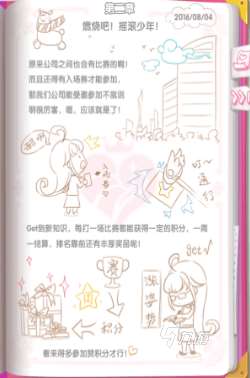 第二章
燃烧吧！摇滚少年！
2016/08/04
原来公司之间也会有比赛的啊！
而且还得有入场券才能参加，
那我们公司能受邀参加不就说
明很厉害，嗯，应该就是了！
入场券
通行
Get到新知识，每打一场比赛都能获得一定的积分，一周
一结算，排名靠前还有丰厚奖品呢！
get√
积分
看来得多参加赞积分才行！